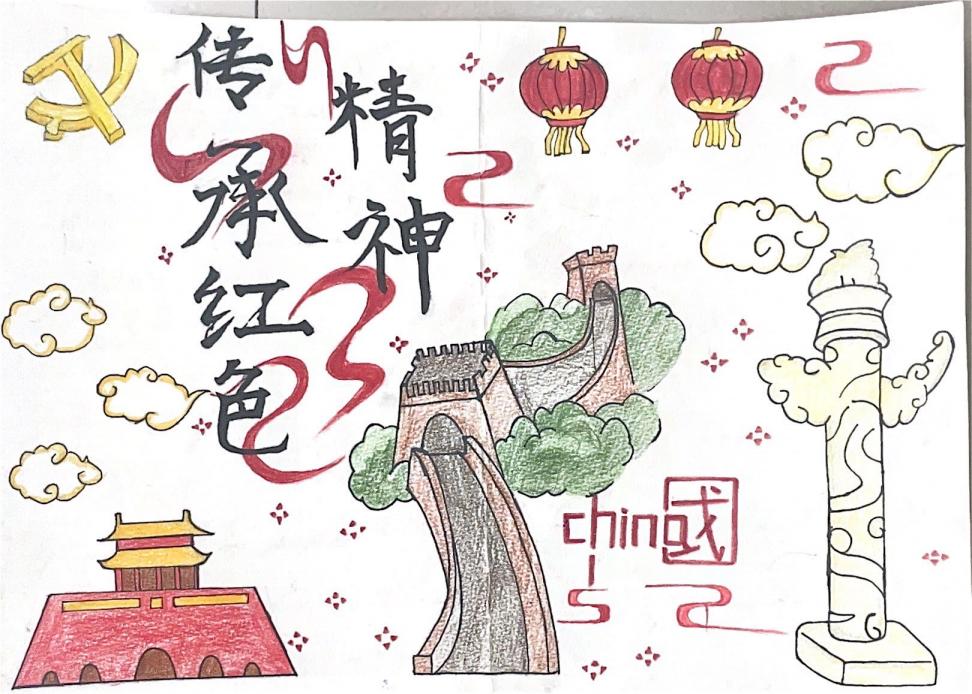 传承红色
精神
china国